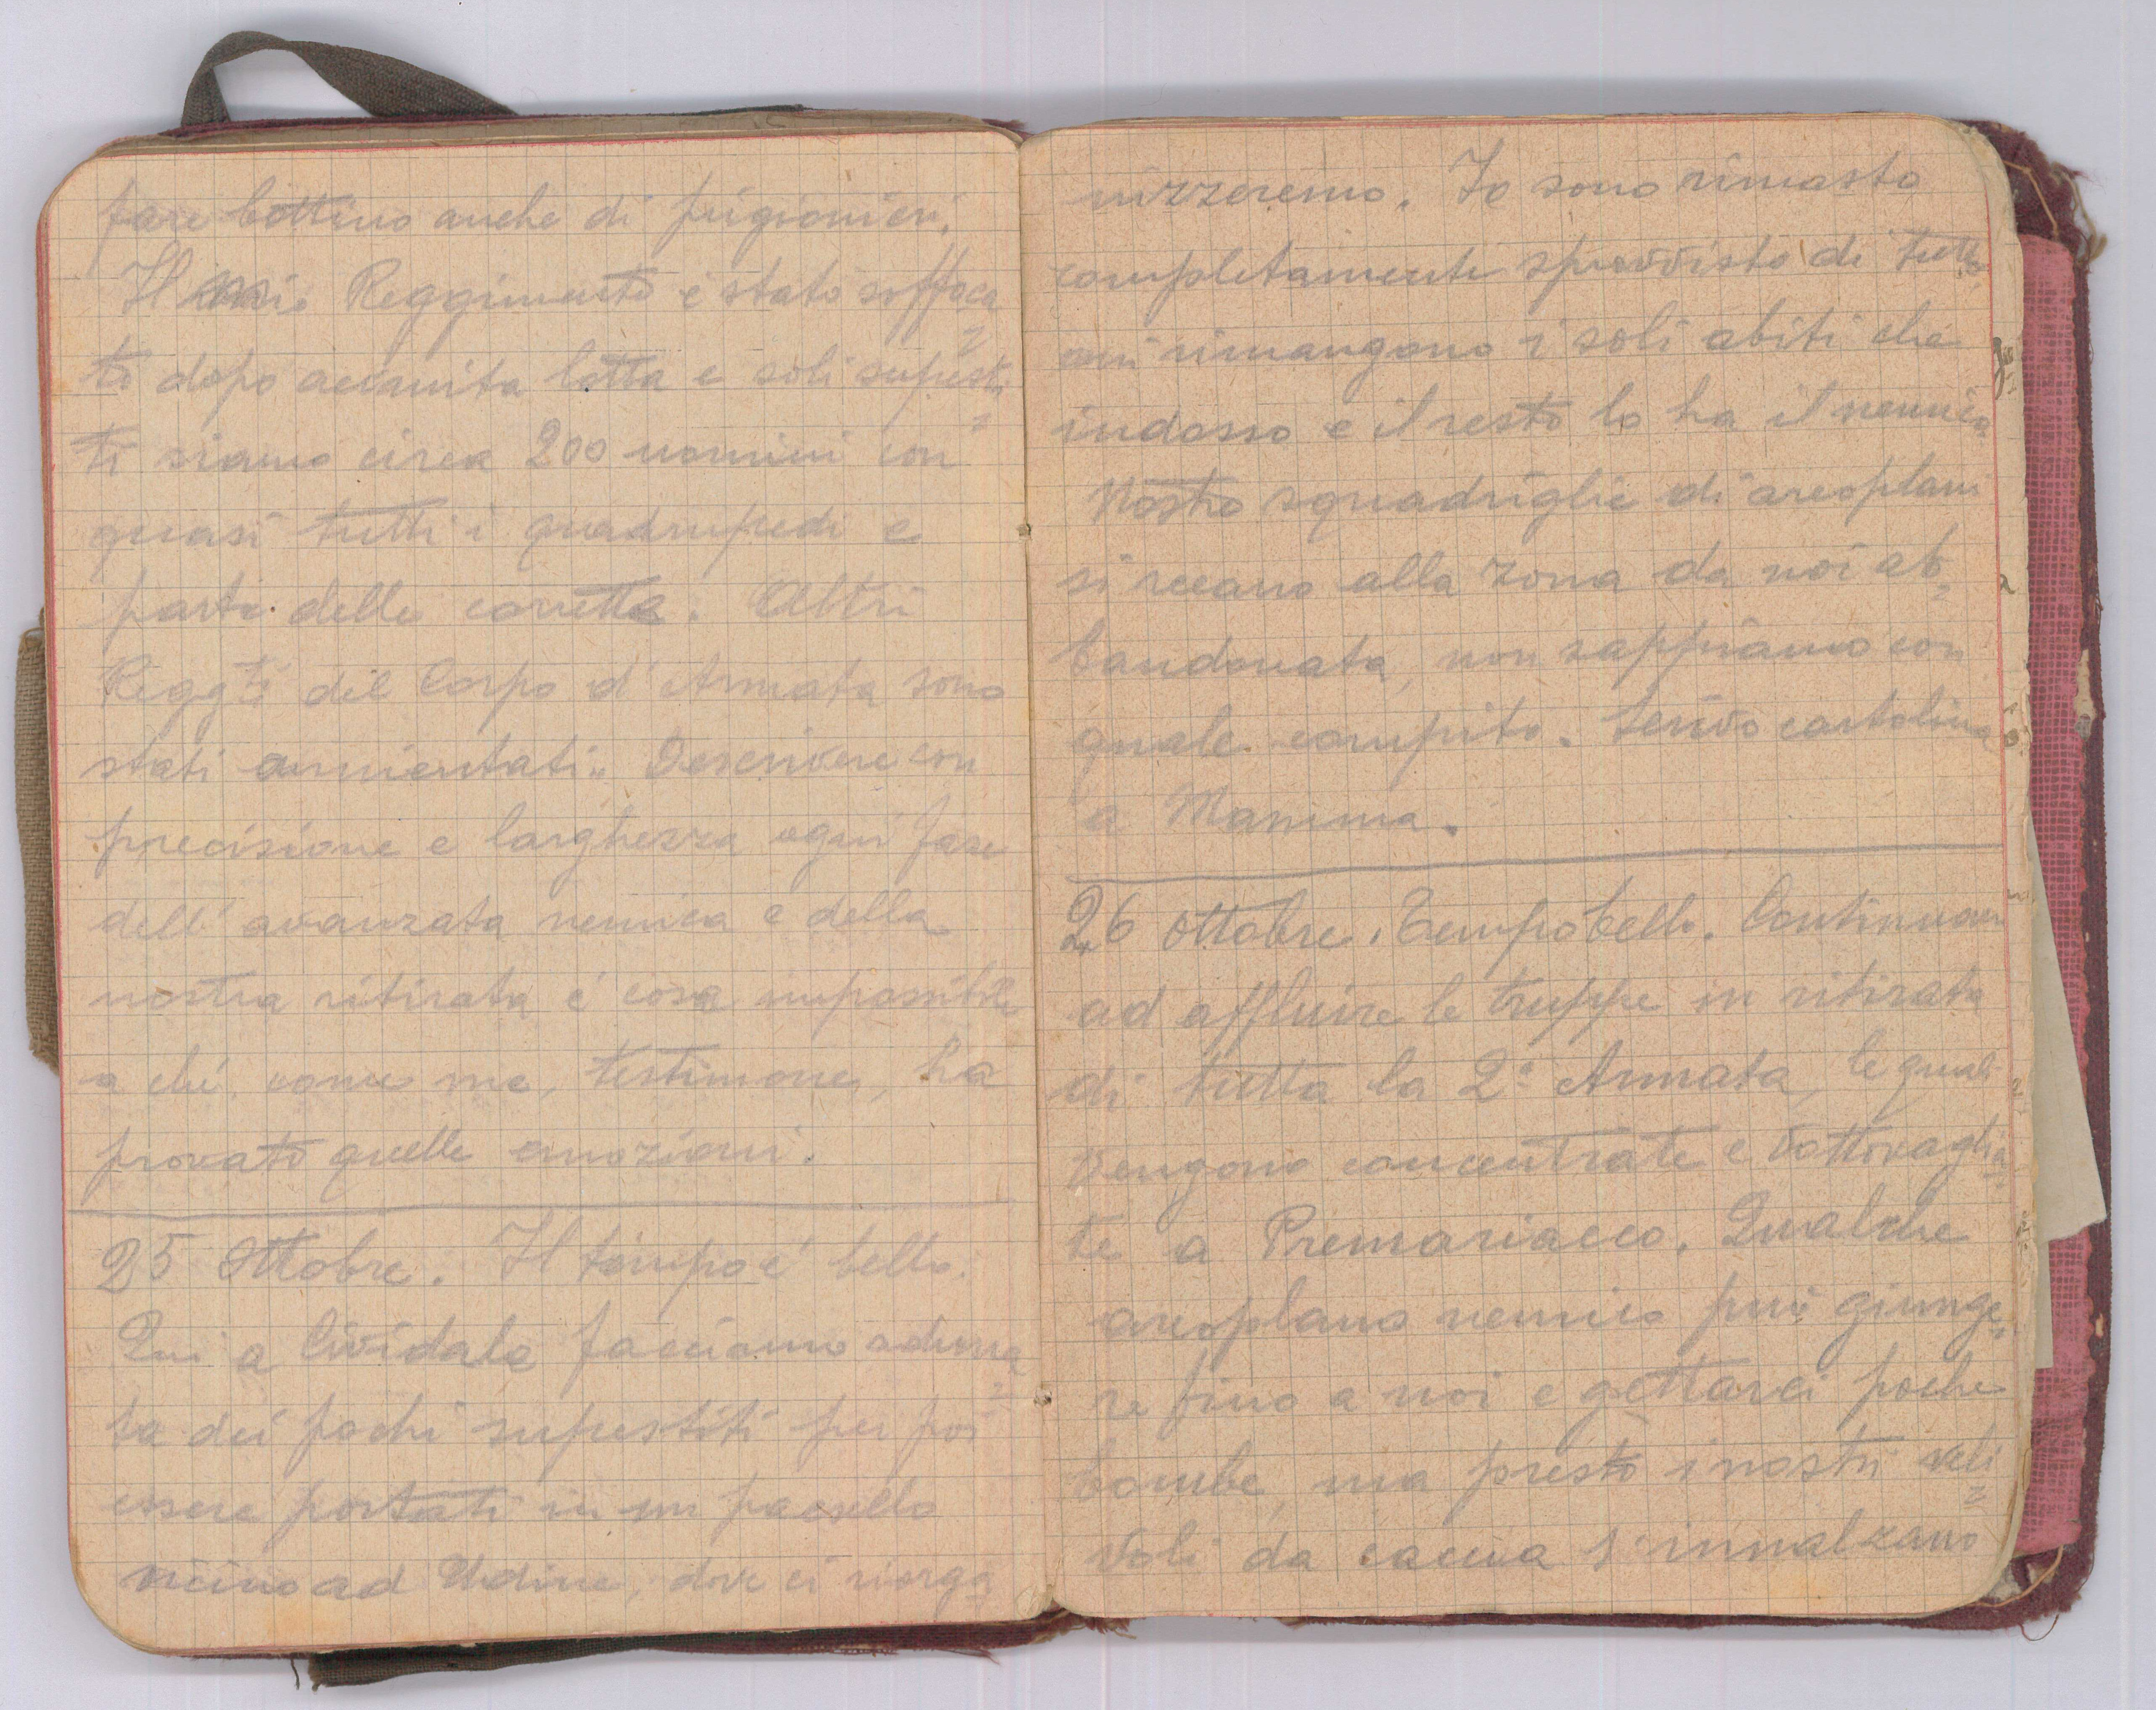 fare bottino anche di prigionieri.
Il mio Reggimento è stato soffoca=
to dopo accanita lotta e soli supersti=
ti siamo circa 200 uomini con
quasi tutti i quadrupedi e
parte delle carrette. Altri
Reggti del Corpo d'Armata sono
stati annientati. Descrivere con
precisione e larghezza ogni fase
dell'avanzata nemica e della
nostra ritirata è cosa impossibile
a chi come me, testimone, ha
provato quelle emozioni.
25 Ottobre. Il tempo è bello.
Qui a Cividale facciamo aduna=
ta dei pochi superstiti per poi
essere portati in un paesello
vicino ad Udine, dove ci riorga=
nizzeremo. Io sono rimasto
completamente sprovvisto di tutto
mi rimangono i soli abiti che
indosso e il resto lo ha il nemico
Nostre squadriglie di areoplani
si recano alla zona da noi ab=
bandonata, non sappiamo con
quale compito. Scrivo cartolina
a Mamma.
26 Ottobre. Tempo bello. Continuano
ad affluire le truppe in ritirata
di tutta la 2ª Armata, le quali
vengono concentrate e vottovaglia=
te a Premariacco. Qualche
areoplano nemico può giunge=
re fino a noi e gettarci poche
bombe, ma presto i nostri veli=
voli da caccia s'innalzano